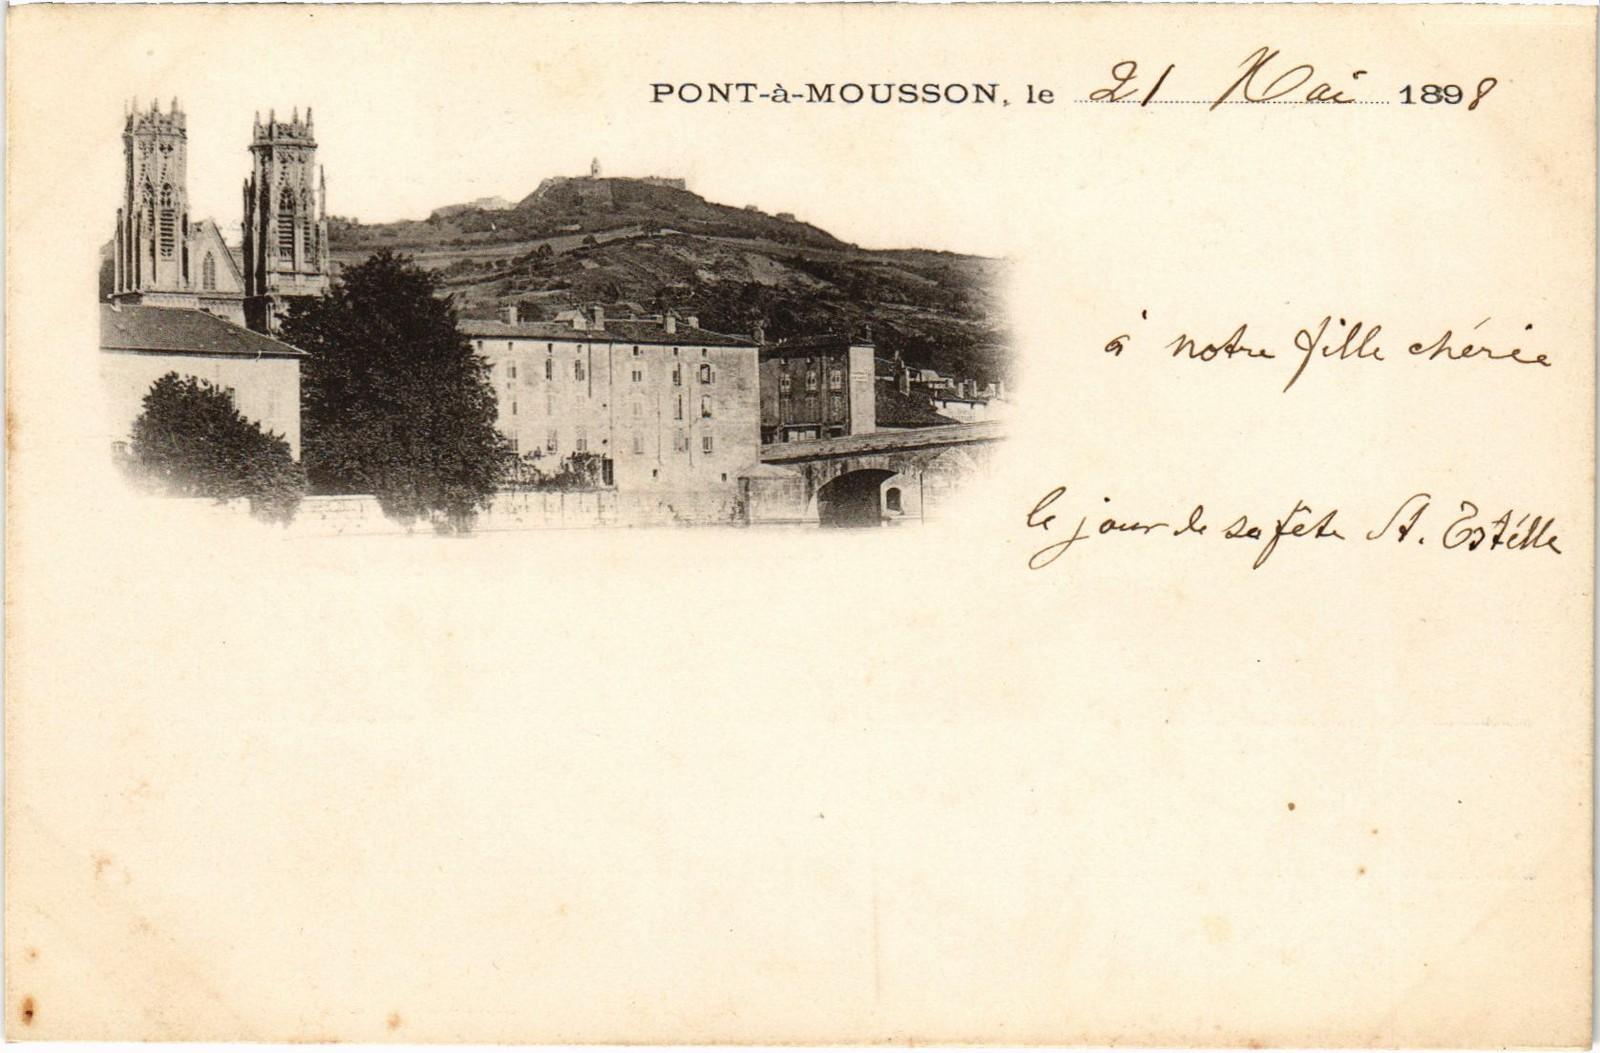 PONT-à-MOUSSON, le 21 Mai 1898
à notre fille chérie
le jour de sa fête St. Estélle